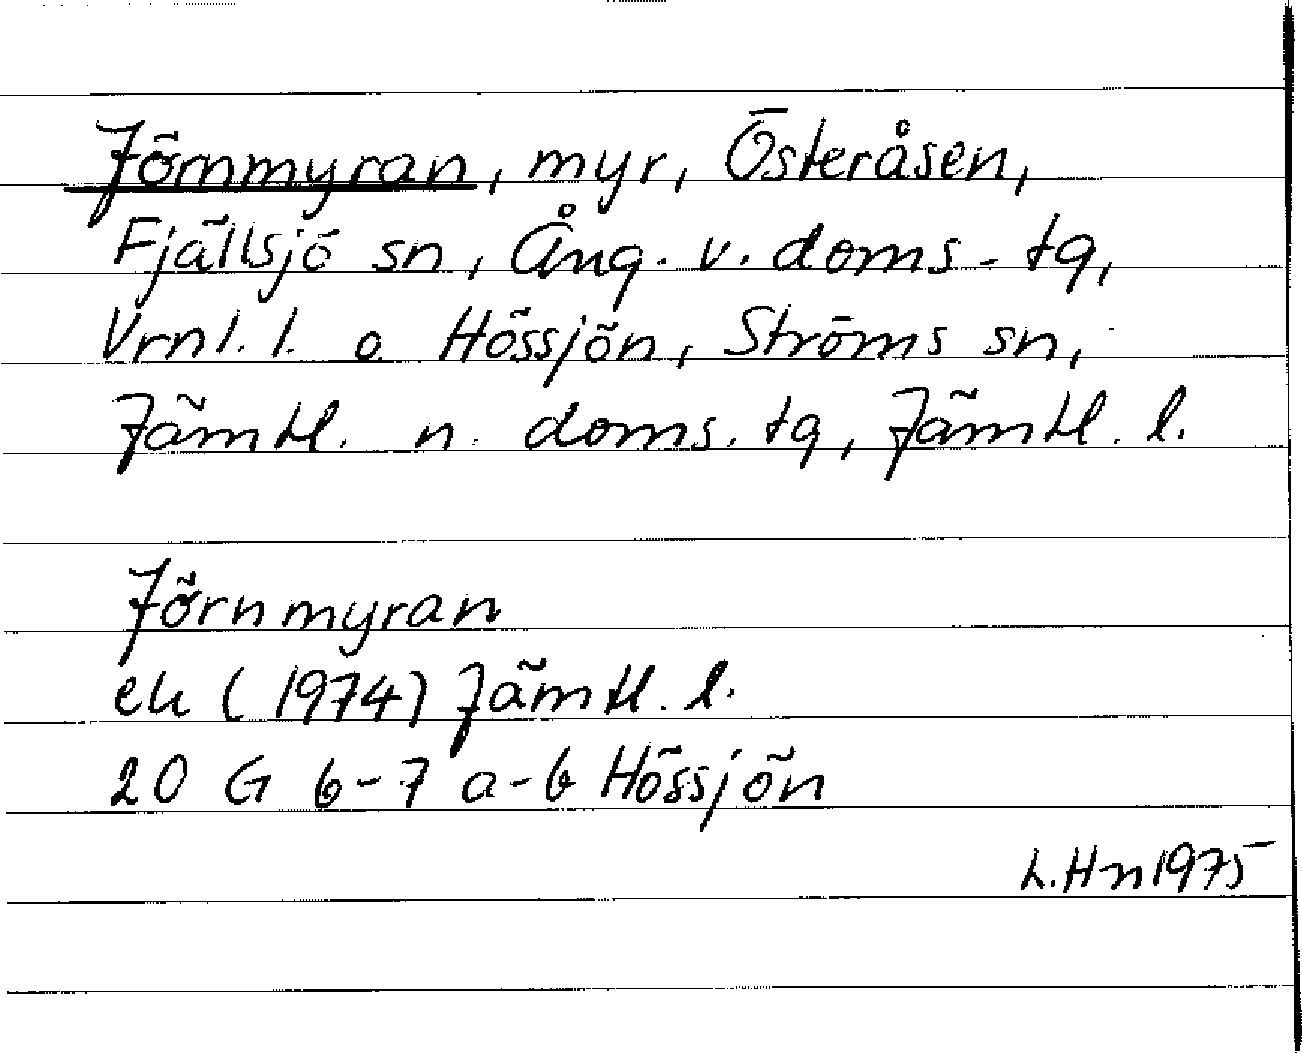 Jörnmyran, myr, Österåsen,
Fjällsjö sn, Ång. v. doms. tg,
Vrnl. l. o Hössjön, Ströms sn,
Jämtl. n. doms. tg, Jämtl. l.
Jörnmyran
ek (1974) Jämtl. l.
20 G 6-7 a-b Hössjön
L. Hn 1975